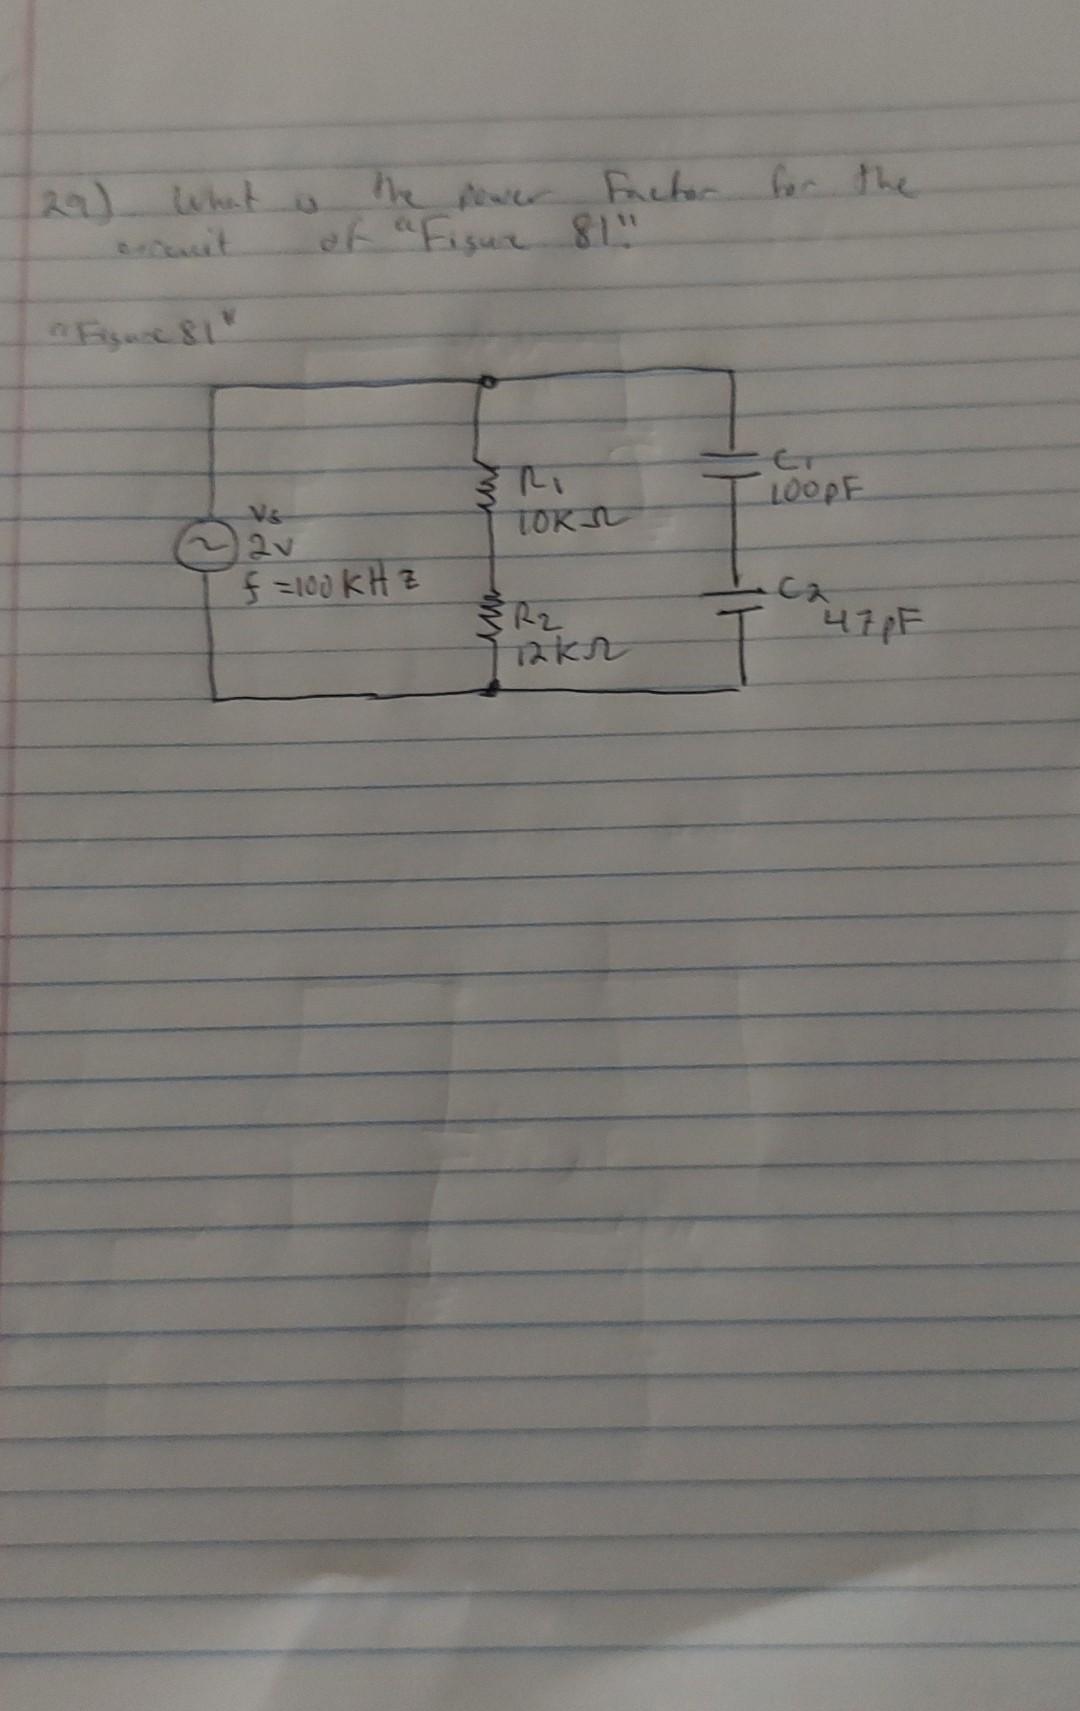 29) What is the power Factor for the
circuit of "Figure 81".
"Figure 81"
Vs
2v
f =100KHz
R1
10KΩ
R2
12KΩ
C1
100pF
C2
47pF